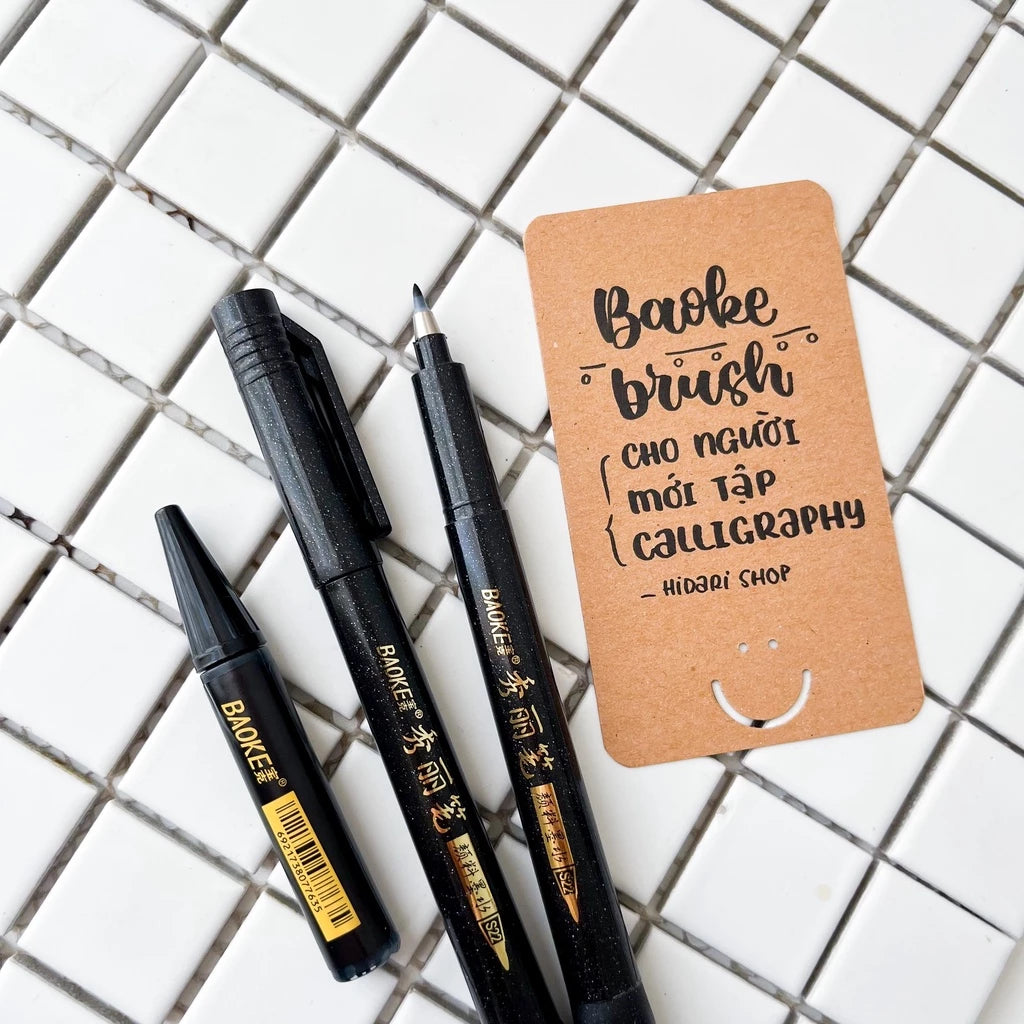 Baoke
brush
CHO NGƯỜI
MỚI TẬP
CALLIGRAPHY
– HIDARI SHOP
BAOKE宝克®
6921738077635
BAOKE宝克®
秀丽笔
颜料墨水
S22
BAOKE宝克®
秀丽笔
颜料墨水
S22